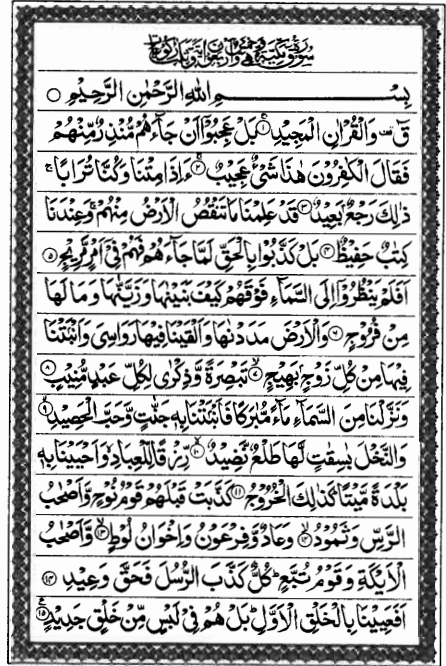 سُوْرَةُ قٓ مَكِّيَّةٌ وَّهِىَ
بِسْــــــــمِ اللهِ الرَّحْمٰنِ الرَّحِيْمِ ○
قٓ ۚ وَالْقُرْاٰنِ الْمَجِيْدِ ۝۱ بَلْ عَجِبُوْٓا اَنْ جَآءَهُمْ مُّنْذِرٌ مِّنْهُمْ
فَقَالَ الْكٰفِرُوْنَ هٰذَا شَىْءٌ عَجِيْبٌ ۝۲ ءَاِذَا مِتْنَا وَكُنَّا تُرَابًا ۚ
ذٰلِكَ رَجْعٌۢ بَعِيْدٌ ۝۳ قَدْ عَلِمْنَا مَا تَنْقُصُ الْاَرْضُ مِنْهُمْ ۚ وَعِنْدَنَا
كِتٰبٌ حَفِيْظٌ ۝۴ بَلْ كَذَّبُوْا بِالْحَقِّ لَمَّا جَآءَهُمْ فَهُمْ فِىْٓ اَمْرٍ مَّرِيْجٍ ۝۵
اَفَلَمْ يَنْظُرُوْٓا اِلَى السَّمَآءِ فَوْقَهُمْ كَيْفَ بَنَيْنٰهَا وَزَيَّنّٰهَا وَمَا لَهَا
مِنْ فُرُوْجٍ ۝۶ وَالْاَرْضَ مَدَدْنٰهَا وَاَلْقَيْنَا فِيْهَا رَوَاسِىَ وَاَنْۢبَتْنَا
فِيْهَا مِنْ كُلِّ زَوْجٍۢ بَهِيْجٍ ۝۷ تَبْصِرَةً وَّذِكْرٰى لِكُلِّ عَبْدٍ مُّنِيْبٍ ۝۸
وَنَزَّلْنَا مِنَ السَّمَآءِ مَآءً مُّبٰرَكًا فَاَنْۢبَتْنَا بِهٖ جَنّٰتٍ وَّحَبَّ الْحَصِيْدِ ۝۹
وَالنَّخْلَ بٰسِقٰتٍ لَّهَا طَلْعٌ نَّضِيْدٌ ۝۱۰ رِّزْقًا لِّلْعِبَادِ ۙ وَاَحْيَيْنَا بِهٖ
بَلْدَةً مَّيْتًا ؕ كَذٰلِكَ الْخُرُوْجُ ۝۱۱ كَذَّبَتْ قَبْلَهُمْ قَوْمُ نُوْحٍ وَّاَصْحٰبُ
الرَّسِّ وَثَمُوْدُ ۝۱۲ وَعَادٌ وَّفِرْعَوْنُ وَاِخْوَانُ لُوْطٍ ۝۱۳ وَّاَصْحٰبُ
الْاَيْكَةِ وَقَوْمُ تُبَّعٍ ؕ كُلٌّ كَذَّبَ الرُّسُلَ فَحَقَّ وَعِيْدِ ۝۱۴
اَفَعَيِيْنَا بِالْخَلْقِ الْاَوَّلِ ؕ بَلْ هُمْ فِىْ لَبْسٍ مِّنْ خَلْقٍ جَدِيْدٍ ۝۱۵